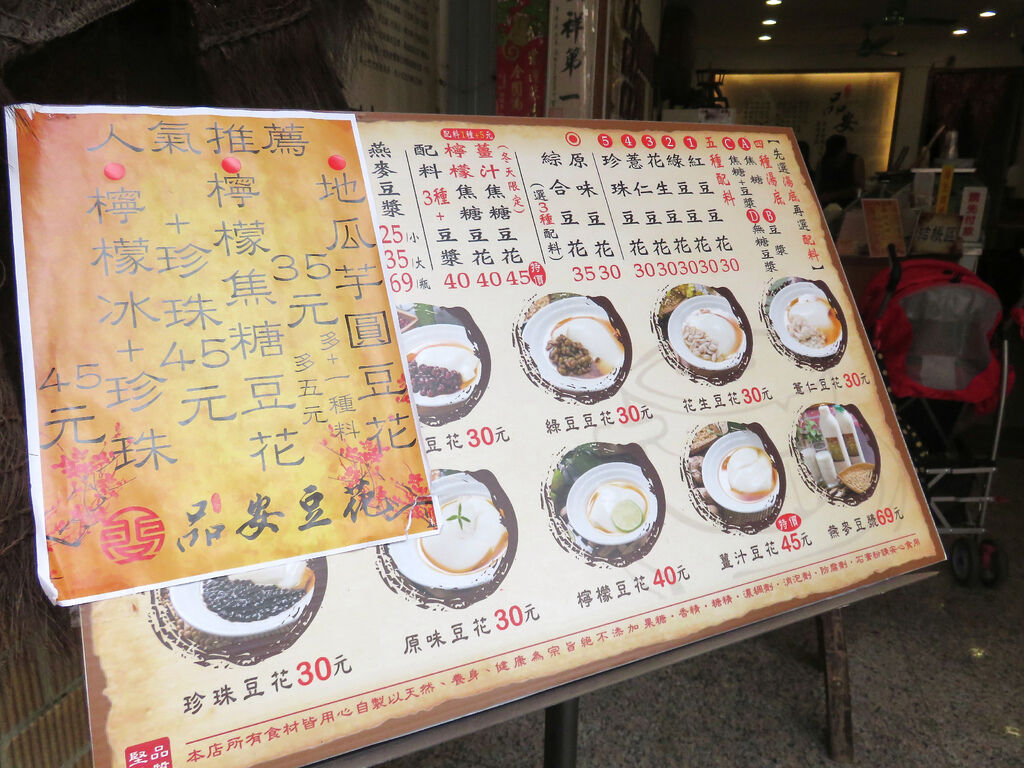 人氣推薦
地瓜芋圓豆花
多+一種料
多五元
35元
檸檬焦糖豆花
+珍珠45元
檸檬冰+珍珠
45元
品安豆花
【先選湯底再選配料】
四種湯底
A焦糖
B豆漿
C焦糖+豆漿
D無糖豆漿
五種配料
1紅豆豆花30
2綠豆豆花30
3花生豆花30
4薏仁豆花30
5珍珠豆花30
原味豆花30
綜合豆花35
(選3種配料)
(冬天限定)
薑汁焦糖豆花45
特價
檸檬焦糖豆花40
配料1種+5元
配料3種+豆漿40
燕麥豆漿
25/小
35/大
69/瓶
豆花30元
綠豆豆花30元
花生豆花30元
薏仁豆花30元
珍珠豆花30元
原味豆花30元
檸檬豆花40元
特價
薑汁豆花45元
燕麥豆漿69元
本店所有食材皆用心自製以天然、養身、健康為宗旨絕不添加果糖·香精·糖精·濃稠劑·消泡劑·防腐劑·石膏粉請安心食用
品
堅
祥第一
品安